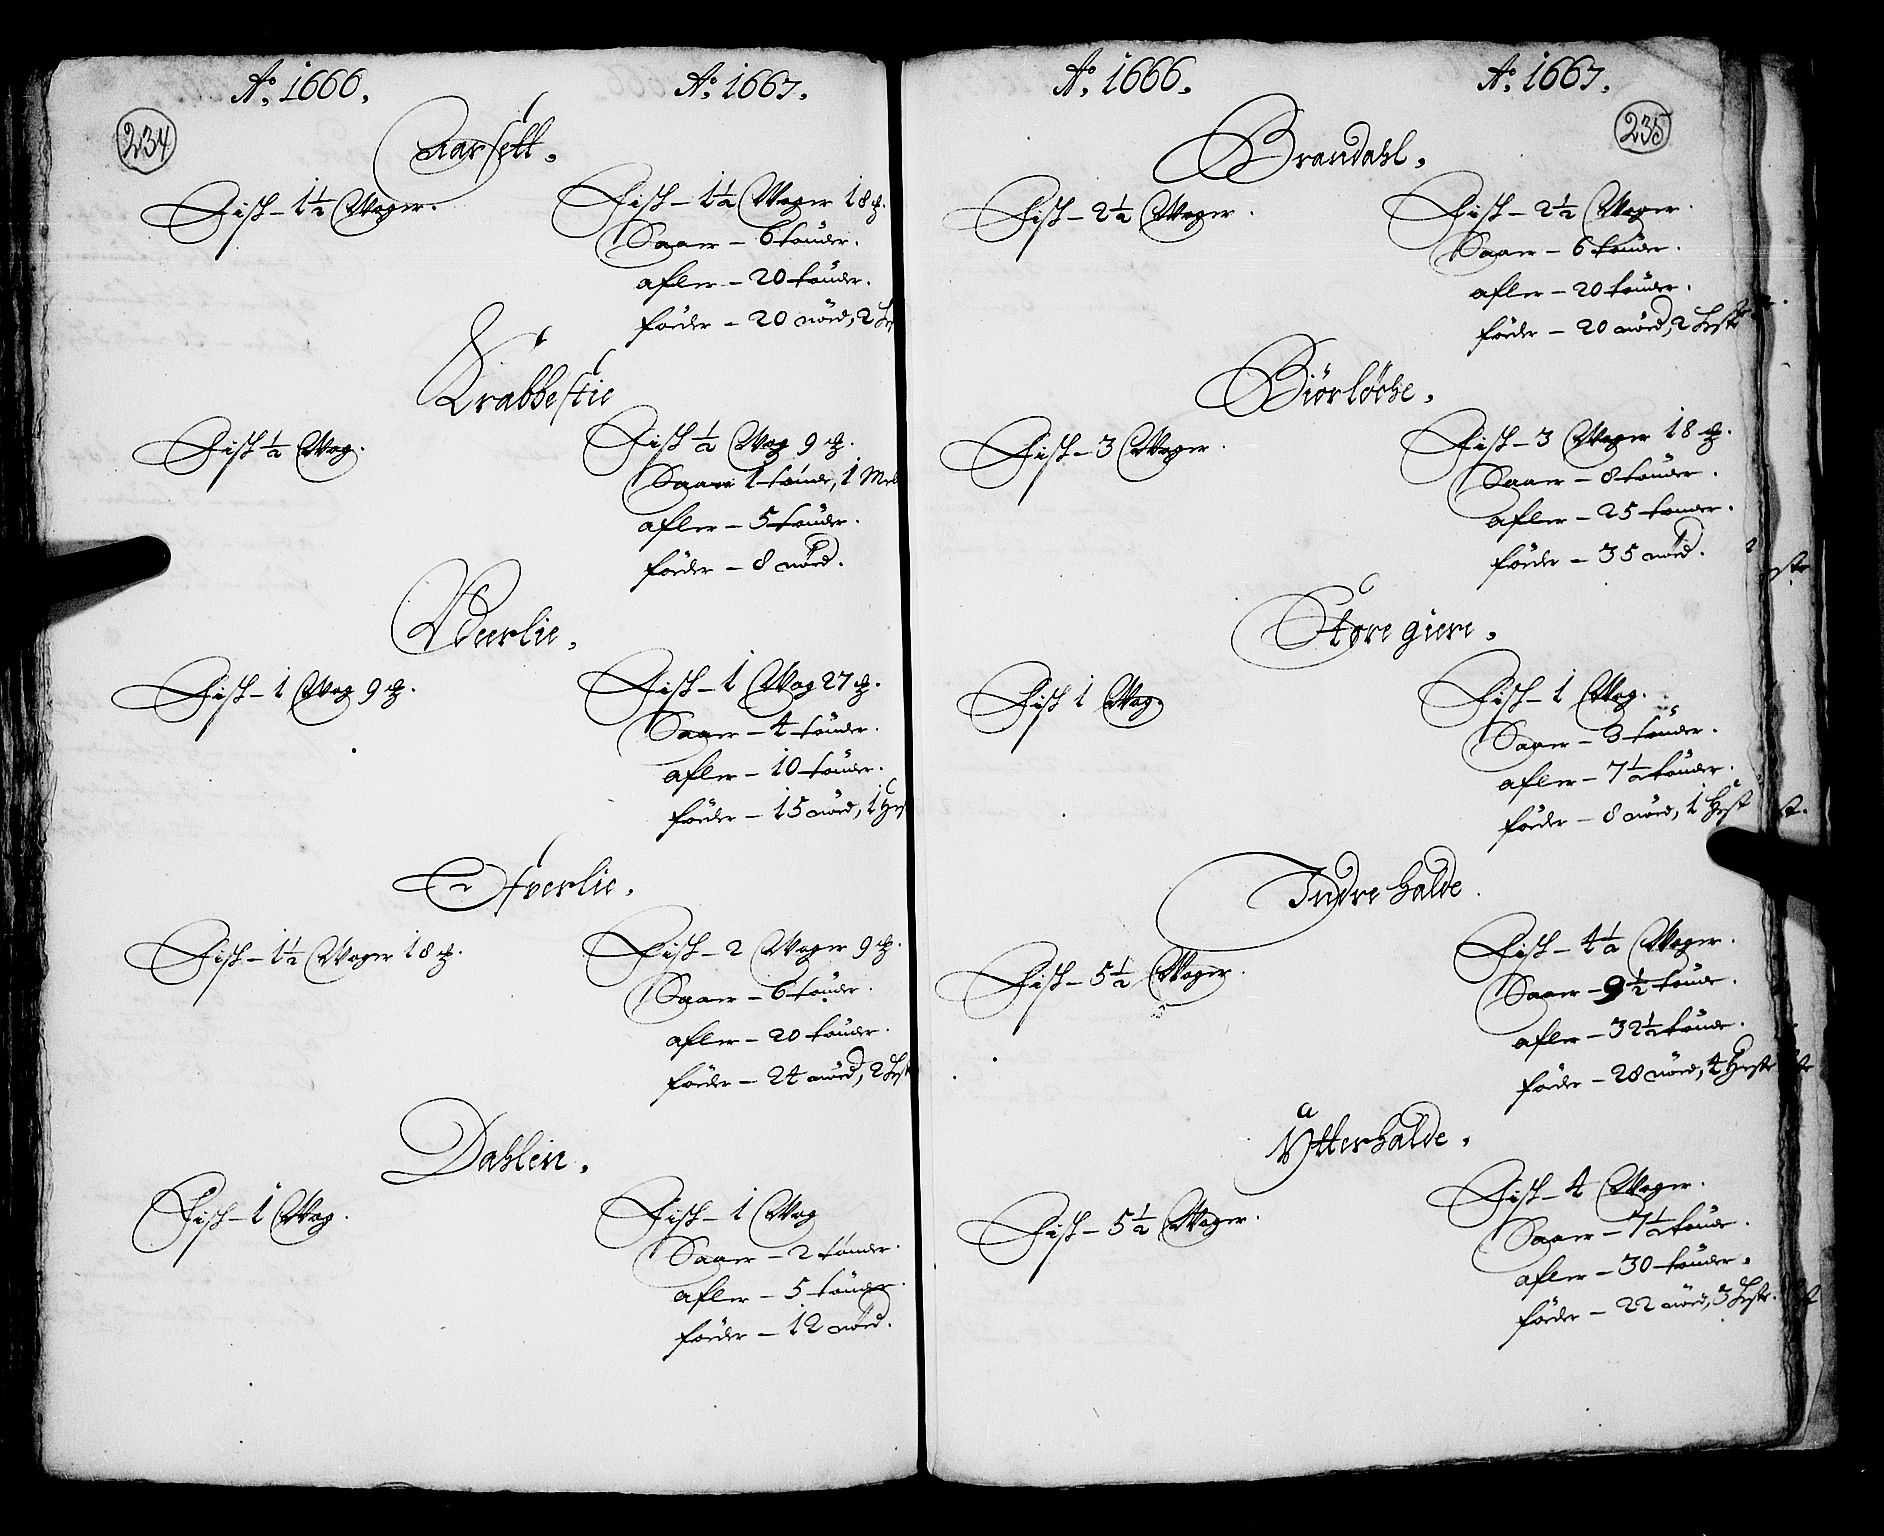 Ao. 1666. Ao. 1667.
234
Aarsett.
Fisk – 1½ Woger.
Fisk – 1½ Woger 18 ℔.
Saaer – 6 tønder.
afler – 20 tønder.
føder – 20 nöed, 2 Hes
Krabbestie
Fisk ½ Wog.
Fisk ½ Wog 9 ℔.
Saaer 1 tønde, 1 Mel
afler – 5 tønder.
føder – 8 nöed.
Vderlie.
Fisk – 1 Wog 9 ℔.
Fisk – 1 Wog 27 ℔.
Saaer – 4 tønder.
afler – 10 tønder.
føder – 15 nöed, 1 Hes
Øfverlie.
Fisk – 1½ Woger 18 ℔.
Fisk – 2 Woger 9 ℔.
Saaer – 6 tønder.
afler – 20 tønder.
føder – 24 nöed, 2 Hest
Dahlen.
Fisk – 1 Wog.
Fisk – 1 Wog
Saaer – 2 tønder.
afler – 5 tønder.
føder – 12 nöed.
Ao. 1666. Ao. 1667.
235
Brandahl.
Fisk – 2½ Woger.
Fisk – 2½ Woger.
Saaer – 6 tønder.
afler – 20 tønder.
føder – 20 nöed, 2 Heste
Biörløche.
Fisk – 3 Woger.
Fisk – 3 Woger 18 ℔.
Saaer – 8 tønder.
afler – 25 tønder.
føder – 35 nöed.
Støre giere.
Fisk 1 Wog.
Fisk – 1 Wog.
Saaer – 3 tønder.
afler – 7½ tønder.
føder – 8 nöed, 1 Hest
Indre halde.
Fisk – 5½ Woger.
Fisk – 4½ Woger.
Saaer – 9½ tønde.
afler – 32½ tønde.
føder – 28 nöed, 4 Heste
Ytterhalde.
Fisk – 5½ Woger.
Fisk – 4 Woger.
Saaer – 7½ tønde.
afler – 30 tønder.
føder – 22 nöed, 3 Heste.